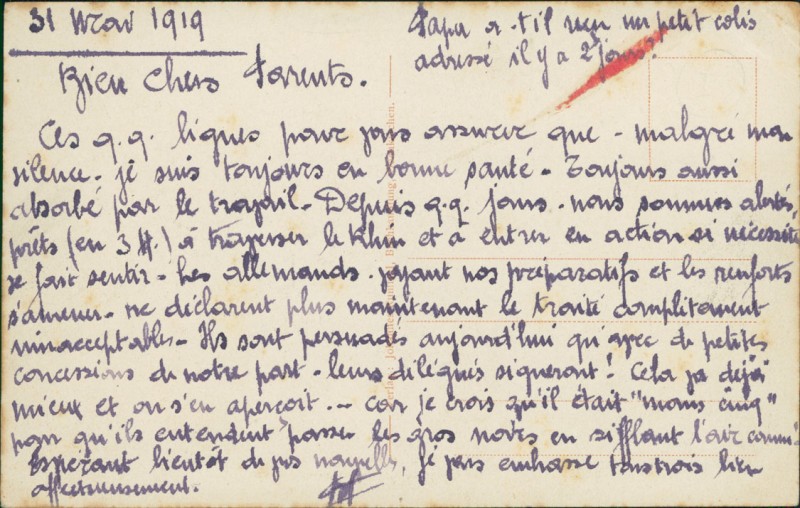 31 Mai 1919
Papa a-t-il reçu un petit colis
adressé il y a 2 jours?
Bien Chers Parents.
Ces q.q. lignes pour vous assurer que - malgré mon
silence - je suis toujours en bonne santé - Toujours aussi
absorbé par le travail - Depuis q.q. jours - nous sommes alertés,
prêts (en 3 H.) à traverser le Rhin et à entrer en action si nécessité
se fait sentir - Les allemands - voyant nos préparatifs et les renforts
s'amener - ne déclarent plus maintenant le traité complètement
"inacceptable" - Ils sont persuadés aujourd'hui qu'avec de petites
concessions de notre part - leurs délégués signeront! Cela va déjà
mieux et on s'en aperçoit. - car je crois qu'il était "moins cinq"
pour qu'ils entendent passer les gros noirs en sifflant l'air connu!
Espérant bientôt de vos nouvelles, je vous embrasse tous trois bien
affectueusement.